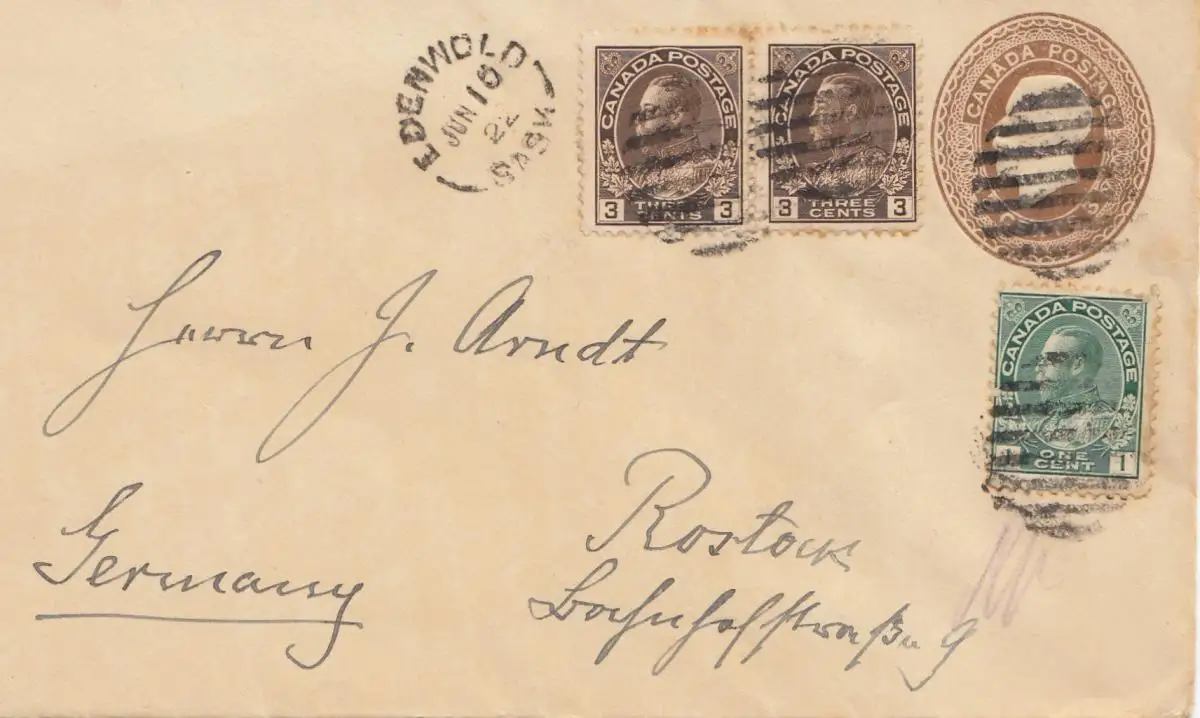 EDENWOLD
JUN 10
22
SASK
CANADA POSTAGE
3 THREE CENTS 3
CANADA POSTAGE
3 THREE CENTS 3
CANADA POSTAGE
CANADA POSTAGE
ONE CENT 1
Herrn J. Arndt
Rostock
Bahnhofstraße 9
Germany